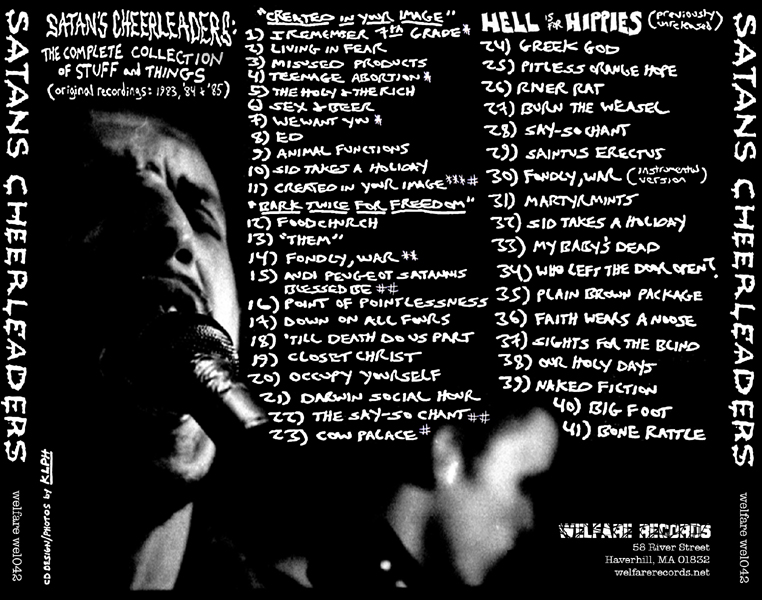 SATANS CHEERLEADERS
SATAN'S CHEERLEADERS:
THE COMPLETE COLLECTION
OF STUFF and THINGS
(original recordings: 1983, '84 & '85)
"CREATED IN YOUR IMAGE"
1) I REMEMBER 7TH GRADE*
2) LIVING IN FEAR
3) MISUSED PRODUCTS
4) TEENAGE ABORTION*
5) THE HOLY & THE RICH
6) SEX & BEER
7) WE WANT YOU *
8) ED
9) ANIMAL FUNCTIONS
10) SID TAKES A HOLIDAY
11) CREATED IN YOUR IMAGE***#
"BARK TWICE FOR FREEDOM"
12) FOODCHURCH
13) "THEM"
14) FONDLY, WAR **
15) ANDI PEUGEOT SATANNIS
BLESSED BE ##
16) POINT OF POINTLESSNESS
17) DOWN ON ALL FOURS
18) 'TILL DEATH DO US PART
19) CLOSET CHRIST
20) OCCUPY YOURSELF
21) DARWIN SOCIAL HOUR
22) THE SAY-SO CHANT ##
23) COW PALACE #
HELL IS for HIPPIES (previously unreleased)
24) GREEK GOD
25) PITLESS ORANGE HOPE
26) RIVER RAT
27) BURN THE WEASEL
28) SAY-SO CHANT
29) SAINTUS ERECTUS
30) FONDLY, WAR (instrumental version)
31) MARTYRMINTS
32) SID TAKES A HOLIDAY
33) MY BABY'S DEAD
34) WHO LEFT THE DOOR OPEN?
35) PLAIN BROWN PACKAGE
36) FAITH WEARS A NOOSE
37) SIGHTS FOR THE BLIND
38) OUR HOLY DAYS
39) NAKED FICTION
40) BIG FOOT
41) BONE RATTLE
CD DESIGN/PHOTOS by KLPH
welfare wel042
WELFARE RECORDS
58 River Street
Haverhill, MA 01832
welfarerecords.net
SATANS CHEERLEADERS
welfare wel042